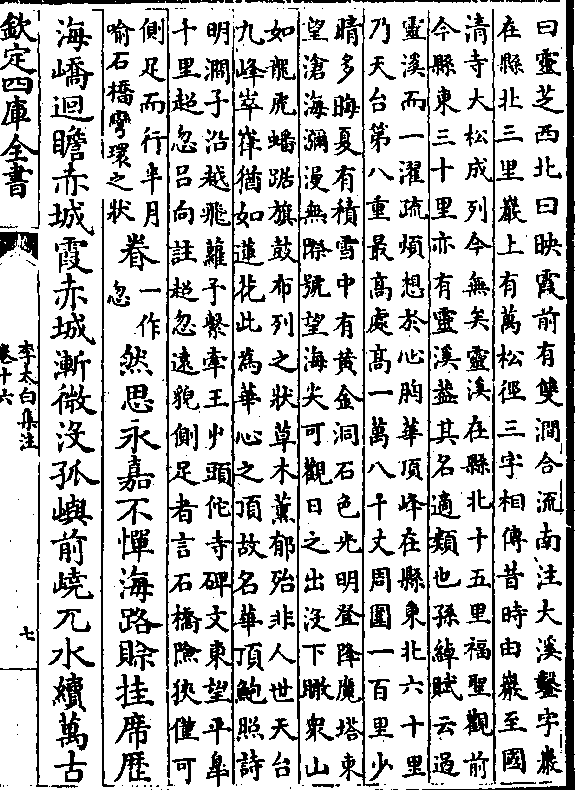 曰靈芝西北曰映霞前有雙澗合流南注大溪鑿字巖
在縣北三里巖上有萬松徑三字相傳昔時由巖至國
清寺大松成列今無矣靈溪在縣北十五里福聖觀前
今縣東三十里亦有靈溪葢其名適類也孫綽賦云過
靈溪而一濯疏煩想於心胸華頂峰在縣東北六十里
乃天台第八重最高處高一萬八千丈周圍一百里少
晴多晦夏有積雪中有黄金洞石色光明登降魔塔東
望滄海瀰漫無際號望海尖可觀日之出没下瞰衆山
如龍虎蟠踞旗鼓布列之狀草木薰郁殆非人世天台
九峰崒嵂猶如蓮花此為華心之頂故名華頂鮑照詩
明澗子沿越飛蘿予縈牽王屮頭佗寺碑文東望平臯
十里超忽吕向註超忽遠貌側足者言石橋險狹僅可
側足而行半月
喻石橋彎環之狀
眷一作忽然思永嘉不憚海路賒挂席歴
海嶠迴瞻赤城霞赤城漸微没孤嶼前嶢兀水續萬古
欽定四庫全書
李太白集注
卷十六
七